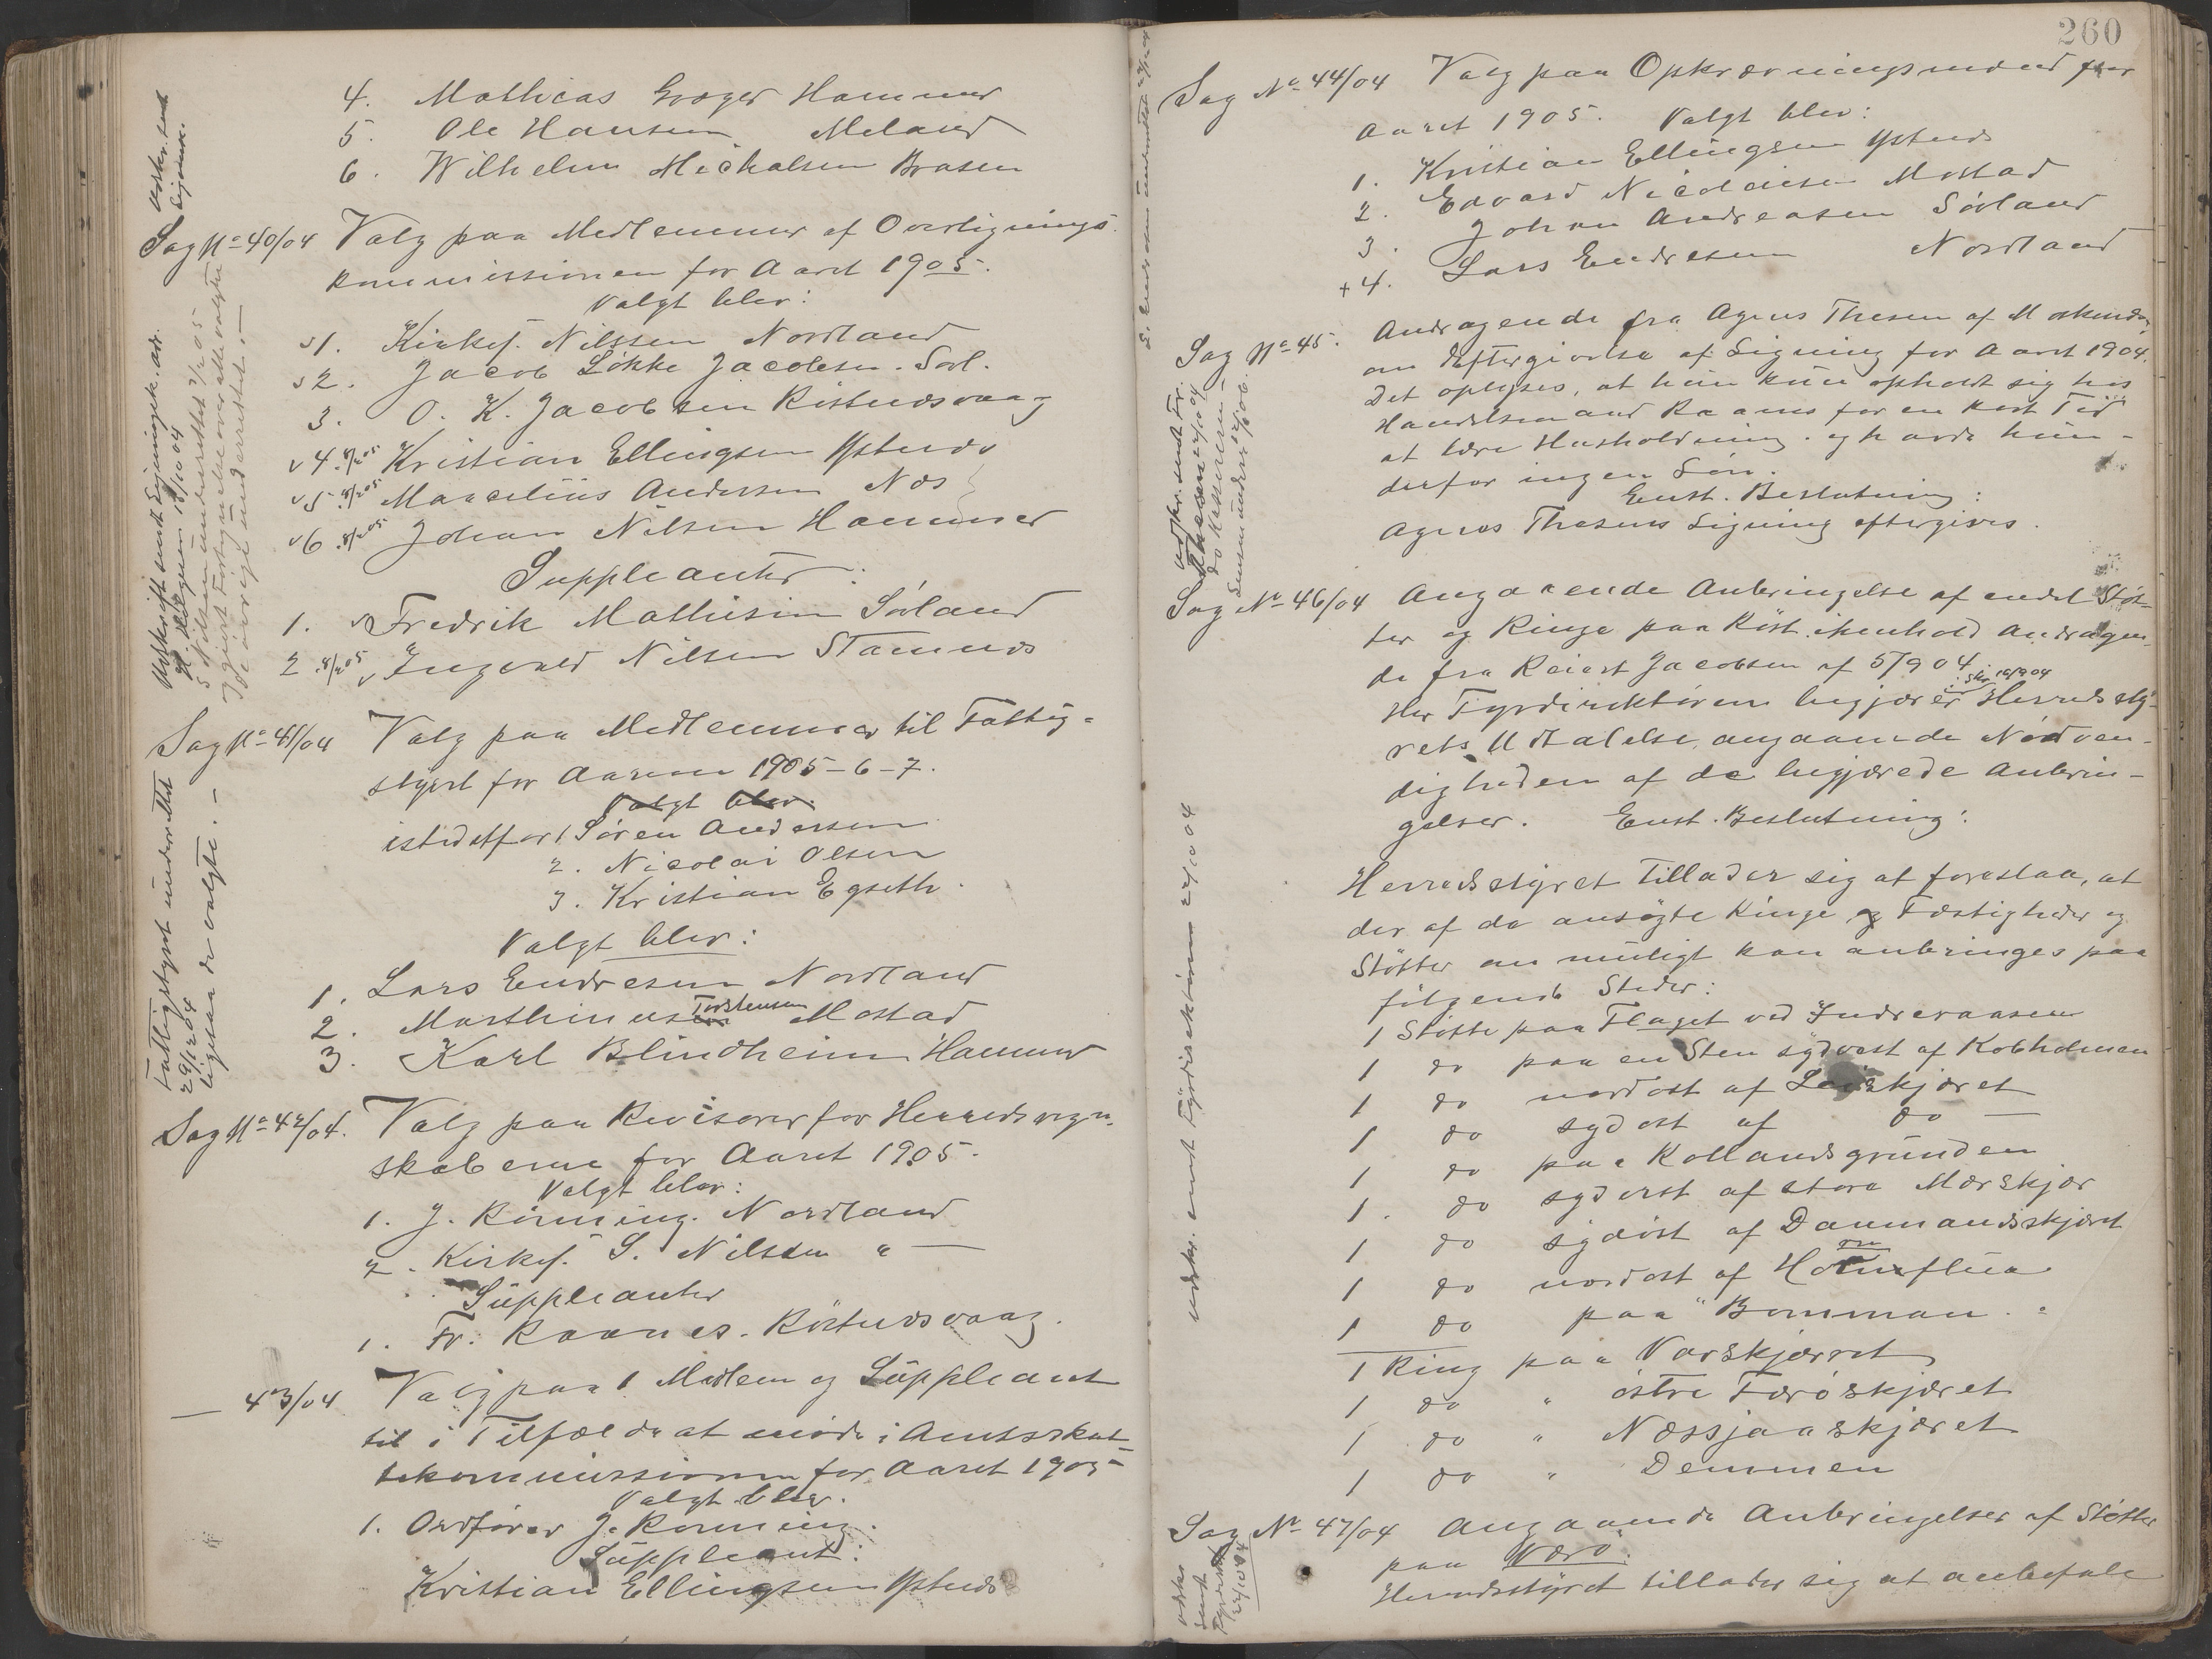 4. Mathias Greger Hammer
5. Ole Hansen Meland
6. Wilhelm Michalsen Brasen
Sag No 40/04 Valg paa Medlemmer af Overlignings-
kommissionen for Aaret 1905.
Valgt blev:
1. Kirkes. Nilssen Nordland
2. Jacob Løkke Jacobsen. Sørl.
3. O. K. Jacobsen Røstnesvaag
4. 8/2 05 Kristian Ellingsen Ystnes
5. 8/2 05 Marcelius Andersen Næs
6. 8/2 05 Johan Nilsen Hammer
Suppleanter:
1. Fredrik Mathisen Sørland
2. 8/2 05 Ingvald Nilsen Stamnes
Udskrift sendt Ligningsk. ordf.
S Nilsen underrettet 2/2 05
Sag No 41/04 Valg paa Medlemmer til Fattig-
styret for Aarene 1905-6-7.
Valgt blev:
istedetfor 1 Søren Andersen
2. Nicolai Olsen
3. Kristian Egseth.
Valgt blev:
1. Lars Endresen Nordland
2. Marthinus Torstensen Mostad
3. Karl Blindheim Hammer
Fattigstyret underrettet
29/12 04
ligesaa de valgte. -
Sag No 42/04. Valg paa Revisorer for Herredsregn-
skaberne for Aaret 1905.
Valgt blev:
1. J. Rønning. Nordland
2. Kirkes. S. Nilsen "
Suppleanter
1. Fr. Raanes. Røstnesvaag.
— 43/04 Valg paa 1 Medlem og Suppleant
til i Tilfælde at møde i Amtsskat-
tekommissionen for Aaret 1905
Valgt blev.
1. Ordfører J. Rønning.
Suppleant:
Kristian Ellingsen Ystnes
260
Sag No 44/04 Valg paa Opkrævningsmænd for
Aaret 1905. Valgt blev:
1. Kristian Ellingsen Ystnes
2. Edvard Nicolaisen Mostad
3. Johan Andreasen Sørland
+4. Lars Endresen Nordland
Sag No 45. Andragende fra Agnes Thesen af
om Eftergivelse af Ligning for Aaret 1904.
Det oplyses, at hun kun opholdt sig hos
Handelsmand Raanes for en kort Tid
at lære Husholdning. og havde hun
derfor ingen Løn.
Enst. Beslutning:
Agnes Thesens Ligning eftergives.
Sag No 46/04 Angaaende Anbringelse af endel Støt-
ter og Ringe paa Røst. ihenhold Andragen-
de fra Reiert Jacobsen af 5/9 04.
Skr 16/9 04
Hr Fyrdirektøren begjærer Herredssty-
rets Udtalelse angaaende Nødven-
digheden af de begjærede Anbrin-
gelser. Enst. Beslutning:
udskr. sendt Fyrdirektøren 24/10 04
Herredsstyret tillader sig at foreslaa, at
der af de ansøgte Ringe og Fæstigheder og
Støtter om muligt kan anbringes paa
følgende Steder:
1 Støtte paa Flaget ved Indreraasen
1 do paa en Sten sydvest af Kobholmen
1 do nordost af Leiskjæret
1 do sydost af do —
1 do paa Kollandsgrunden
1. do sydvest af store Mærskjær
1 do sydost af Danmandsskjæret
1 do nordost af
1 do paa "Bommen"
1 Ring paa Varskjæret
1 do " østre Færøskjæret
1 do " Næssjaaskjæret
1 do " Demmen
Sag No 47/04 Angaaende Anbringelser af Støtter
paa Værø.
Herredsstyret tillader sig at anbefale
udskr
sendt
Fyrdirekt
24/10 04